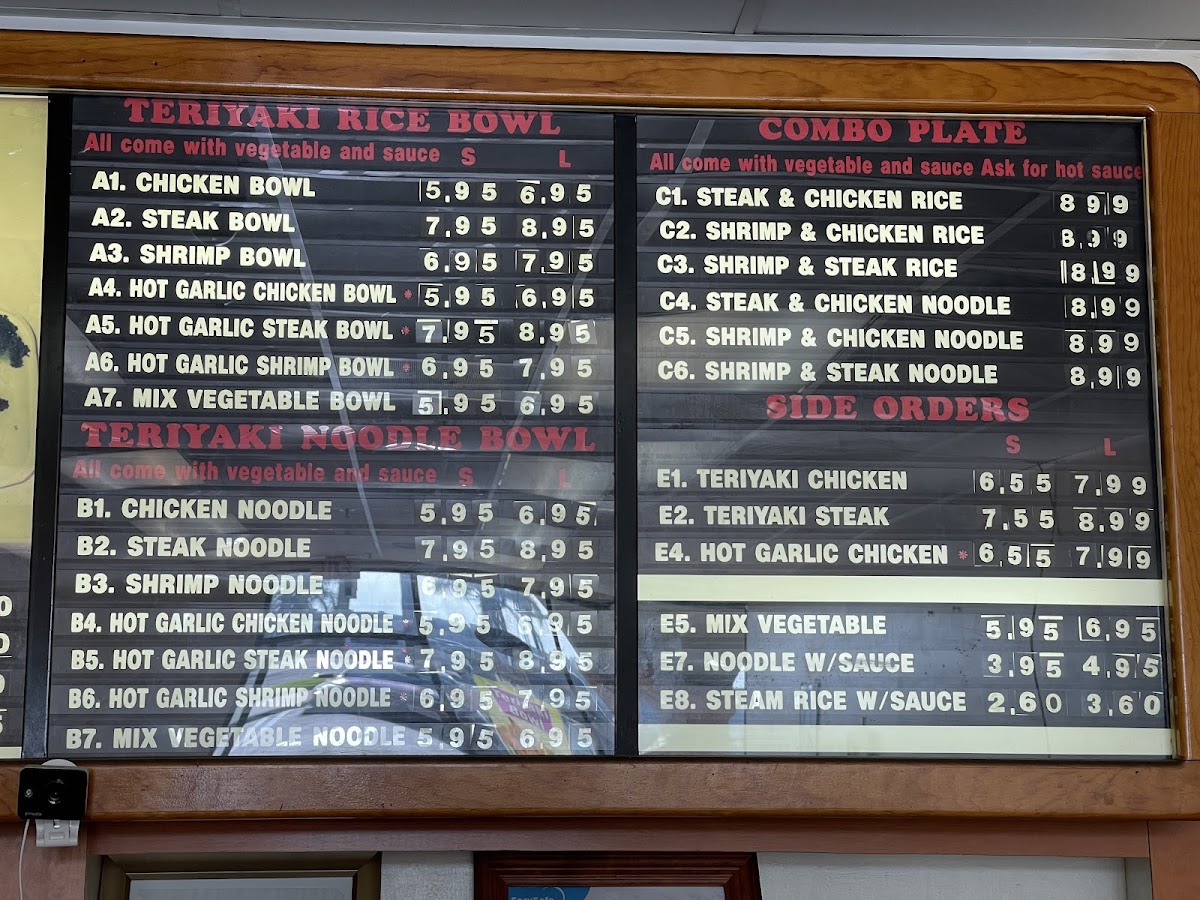 TERIYAKI RICE BOWL
All come with vegetable and sauce S L
A1. CHICKEN BOWL 5.95 6.95
A2. STEAK BOWL 7.95 8.95
A3. SHRIMP BOWL 6.95 7.95
A4. HOT GARLIC CHICKEN BOWL * 5.95 6.95
A5. HOT GARLIC STEAK BOWL * 7.95 8.95
A6. HOT GARLIC SHRIMP BOWL * 6.95 7.95
A7. MIX VEGETABLE BOWL 5.95 6.95
TERIYAKI NOODLE BOWL
All come with vegetable and sauce S L
B1. CHICKEN NOODLE 5.95 6.95
B2. STEAK NOODLE 7.95 8.95
B3. SHRIMP NOODLE 6.95 7.95
B4. HOT GARLIC CHICKEN NOODLE * 5.95 6.95
B5. HOT GARLIC STEAK NOODLE * 7.95 8.95
B6. HOT GARLIC SHRIMP NOODLE * 6.95 7.95
B7. MIX VEGETABLE NOODLE 5.95 6.95
COMBO PLATE
All come with vegetable and sauce Ask for hot sauce
C1. STEAK & CHICKEN RICE 8 99
C2. SHRIMP & CHICKEN RICE 8.99
C3. SHRIMP & STEAK RICE 8.99
C4. STEAK & CHICKEN NOODLE 8.99
C5. SHRIMP & CHICKEN NOODLE 8.99
C6. SHRIMP & STEAK NOODLE 8.99
SIDE ORDERS
S L
E1. TERIYAKI CHICKEN 6.55 7.99
E2. TERIYAKI STEAK 7.55 8.99
E4. HOT GARLIC CHICKEN * 6.55 7.99
E5. MIX VEGETABLE 5.95 6.95
E7. NOODLE W/SAUCE 3.95 4.95
E8. STEAM RICE W/SAUCE 2.60 3.60